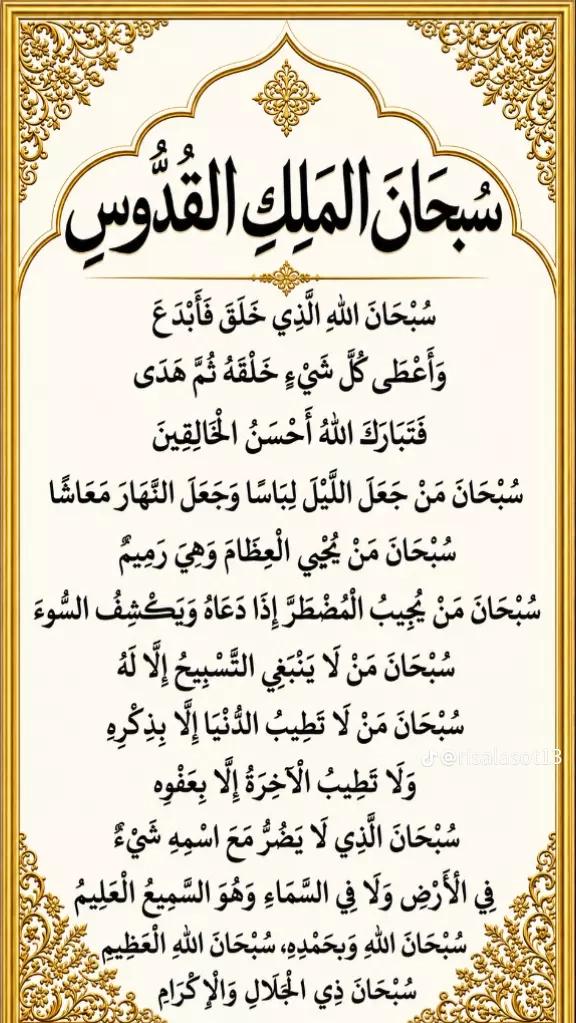 سُبْحَانَ المَلِكِ القُدُّوسِ
سُبْحَانَ اللهِ الَّذِي خَلَقَ فَأَبْدَعَ
وَأَعْطَى كُلَّ شَيْءٍ خَلْقَهُ ثُمَّ هَدَى
فَتَبَارَكَ اللهُ أَحْسَنُ الْخَالِقِينَ
سُبْحَانَ مَنْ جَعَلَ اللَّيْلَ لِبَاسًا وَجَعَلَ النَّهَارَ مَعَاشًا
سُبْحَانَ مَنْ يُحْيِي الْعِظَامَ وَهِيَ رَمِيمٌ
سُبْحَانَ مَنْ يُجِيبُ الْمُضْطَرَّ إِذَا دَعَاهُ وَيَكْشِفُ السُّوءَ
سُبْحَانَ مَنْ لَا يَنْبَغِي التَّسْبِيحُ إِلَّا لَهُ
سُبْحَانَ مَنْ لَا تَطِيبُ الدُّنْيَا إِلَّا بِذِكْرِهِ
@risalasot13
وَلَا تَطِيبُ الْآخِرَةُ إِلَّا بِعَفْوِه
سُبْحَانَ الَّذِي لَا يَضُرُّ مَعَ اسْمِهِ شَيْءٌ
فِي الْأَرْضِ وَلَا فِي السَّمَاءِ وَهُوَ السَّمِيعُ الْعَلِيمُ
سُبْحَانَ اللهِ وَبِحَمْدِهِ، سُبْحَانَ اللهِ الْعَظِيمِ
سُبْحَانَ ذِي الْجَلَالِ وَالْإِكْرَامِ